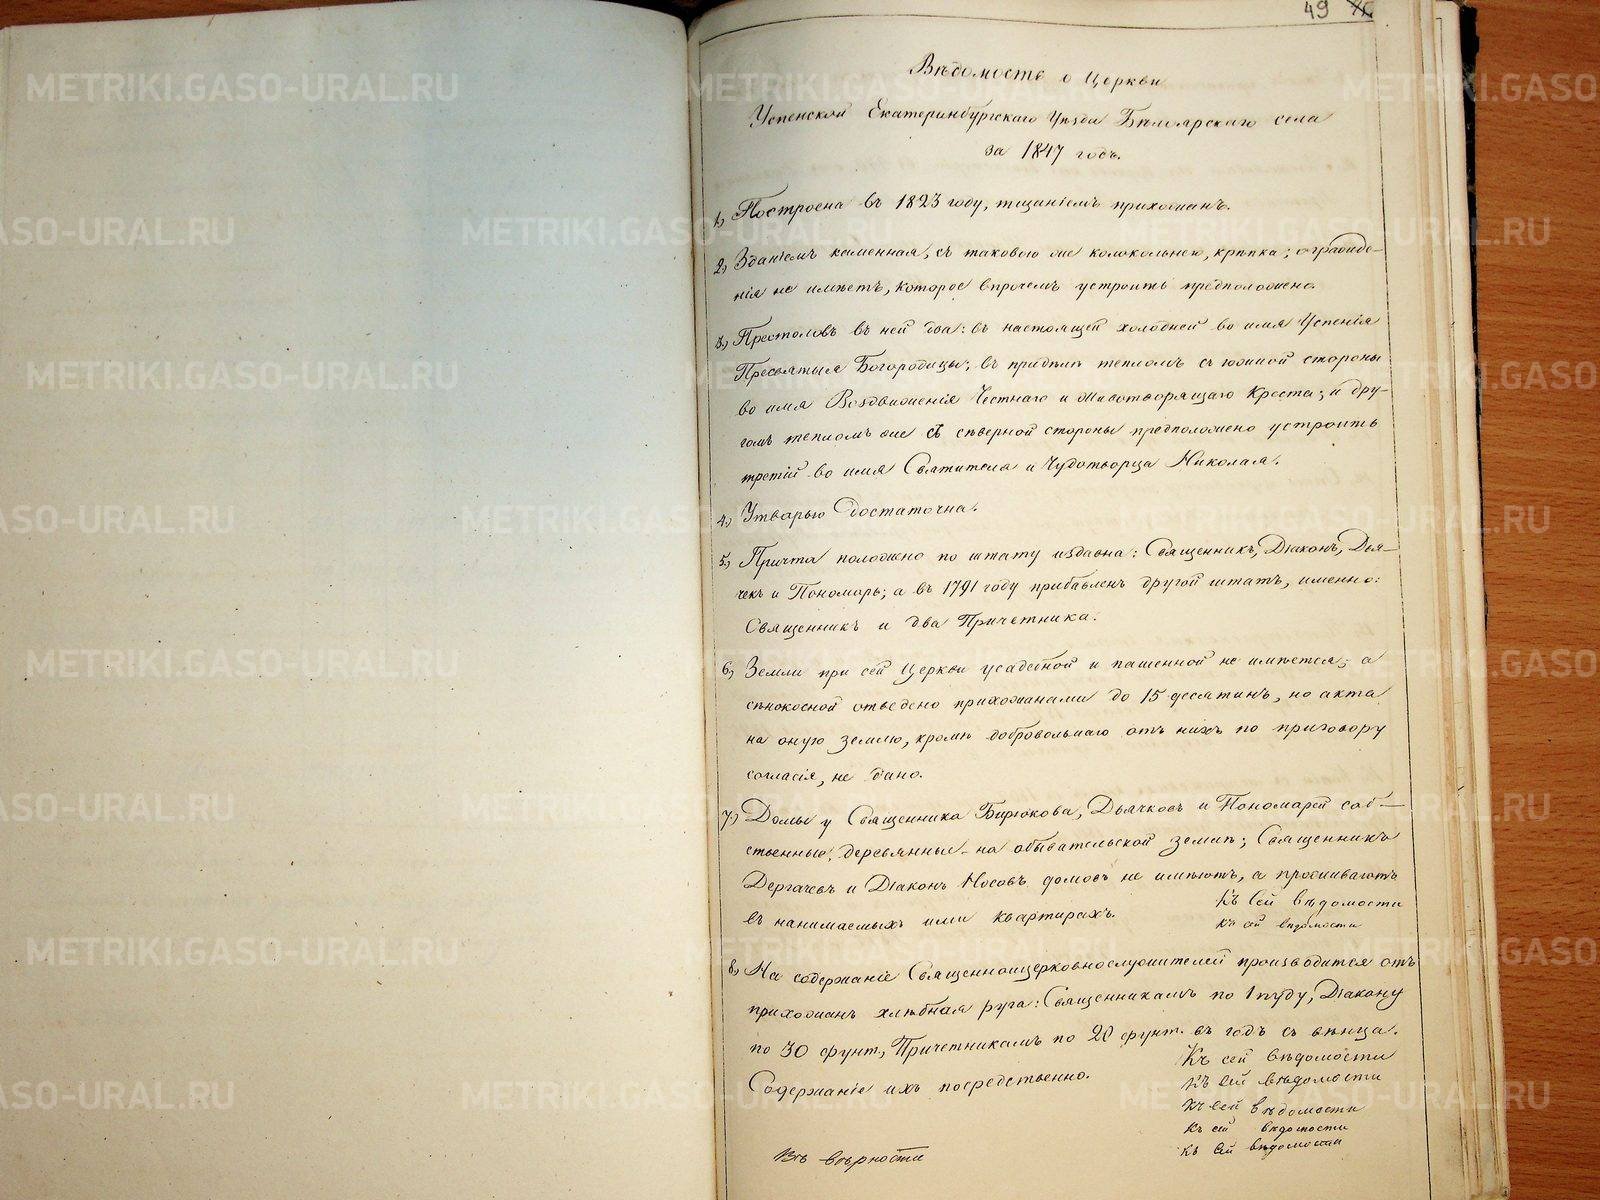 49
Вѣдомость о Церкви
Успенской Екатеринбургскаго Уѣзда Бѣлоярскаго села
за 1847 годъ.
1) Построена въ 1823 году, тщаніемъ прихожанъ.
2) Зданіемъ каменная, съ таковою же колокольнею, крѣпка; огражде-
нія не имѣетъ, которое впрочемъ устроить предположено.
3) Престоловъ въ ней два: въ настоящей холодней во имя Успенія
Пресвятыя Богородицы; въ придѣлѣ тепломъ съ южной стороны
во имя Воздвиженія Честнаго и Животворящаго Креста; и дру-
гомъ тепломъ же съ сѣверной стороны предположено устроить
третій во имя Святителя и Чудотворца Николая.
4) Утварью достаточна.
5) Причта положно по штату издавна: Священникъ, Діаконъ, Дья-
чекъ и Пономарь; а въ 1791 году прибавленъ другой штатъ, именно:
Священникъ и два Причетника.
6) Земли при сей Церкви усадебной и пашенной не имѣется; а
сѣнокосной отведено прихожанами до 15 десятинъ, но акта
на оную землю, кромѣ добровольнаго отъ нихъ по приговору
согласія, не дано.
7) Домы у Священника Бирюкова, Дьячковъ и Пономарей соб-
ственные, деревянные на обывательской землѣ; Священникъ
Дергачевъ и Діаконъ Носовъ домовъ не имѣютъ, а проживаютъ
въ нанимаемыхъ ими квартирахъ.
Къ сей вѣдомости
къ сей вѣдомости
8) На содержаніе Священноицерковнослужителей производится отъ
прихожанъ хлѣбная руга: Священникамъ по 1 пуду, Діакону
по 30 фунт., Причетникамъ по 20 фунт. въ годъ съ вѣнца.
Содержаніе ихъ посредственно.
Къ сей вѣдомости
Къ сей вѣдомости
Къ сей вѣдомости
Къ сей вѣдомости
Къ сей вѣдомости
Въ вѣрности
METRIKI.GASO-URAL.RU